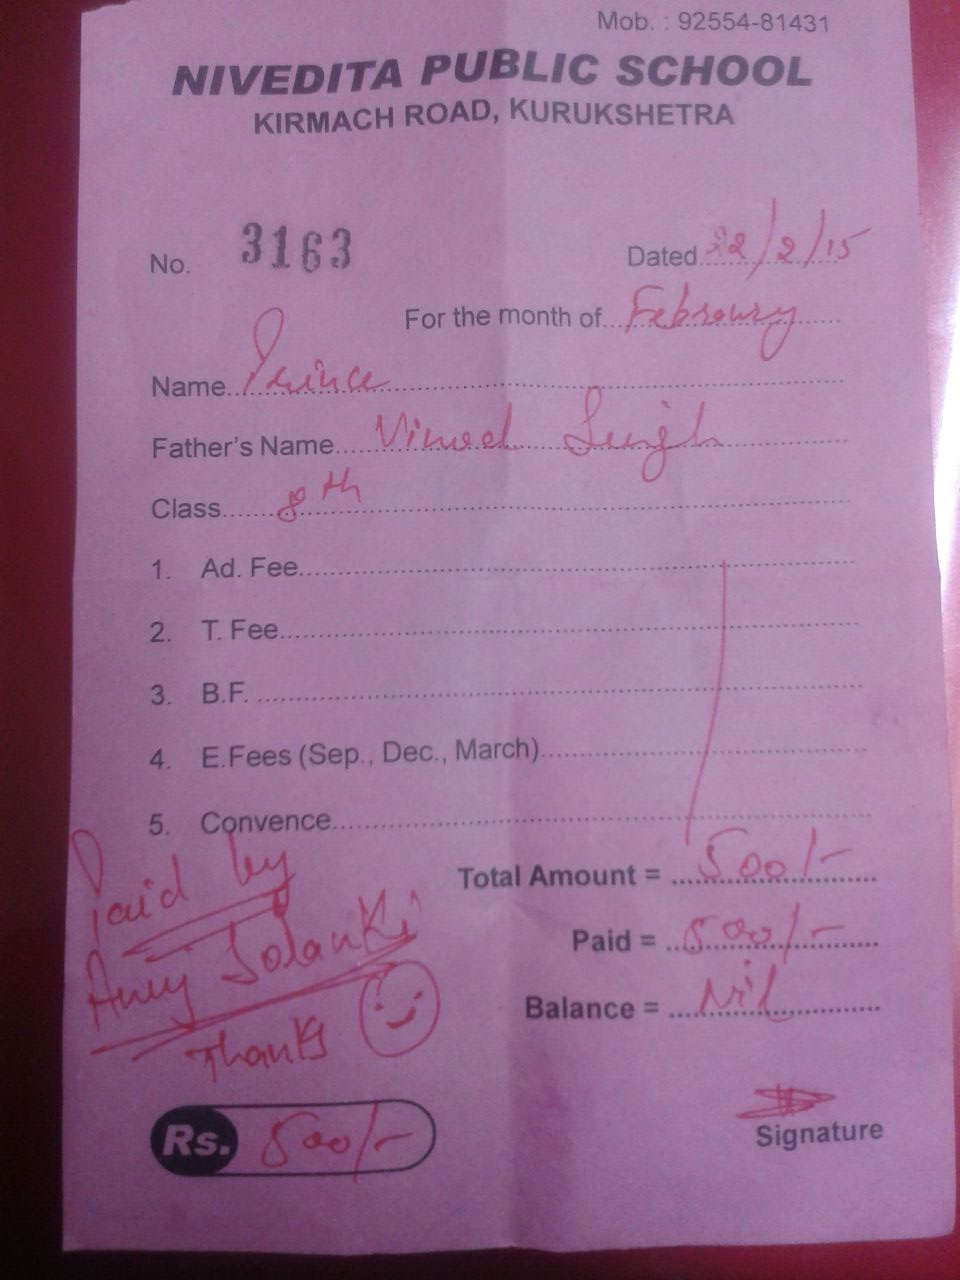 Mob. : 92554-81431
NIVEDITA PUBLIC SCHOOL
KIRMACH ROAD, KURUKSHETRA
No. 3163 Dated 22/2/15
For the month of Febroury
Name Prince
Father's Name Vinod Singh
Class 8th
1. Ad. Fee
2. T. Fee
3. B.F.
4. E.Fees (Sep., Dec., March)
5. Convence
Total Amount = 500/-
Paid = 500/-
Balance = Nil
Paid by
Solanki
Thanks
Rs. 500/-
Signature